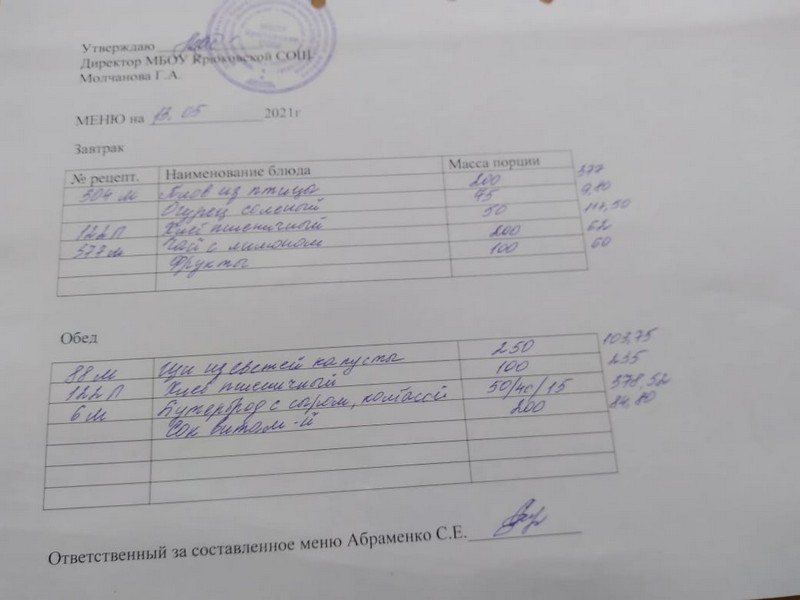 Утверждаю
Директор МБОУ Крюковской СОШ
Молчанова Г.А.
МЕНЮ на 13. 05 2021г
Завтрак
№ рецепт. Наименование блюда Масса порции
304 м Плов из птицы 200 377
Огурец соленый 75 9,80
122 П Хлеб пшеничный 50 117,50
377 м Чай с лимоном 200 62
Фрукты 100 60
Обед
88 м Щи из свежей капусты 250 103,75
122 П Хлеб пшеничный 100 235
6 м Бутерброд с сыром, колбасой 50/40/15 378,52
Сок витам-й 200 84,80
Ответственный за составленное меню Абраменко С.Е.